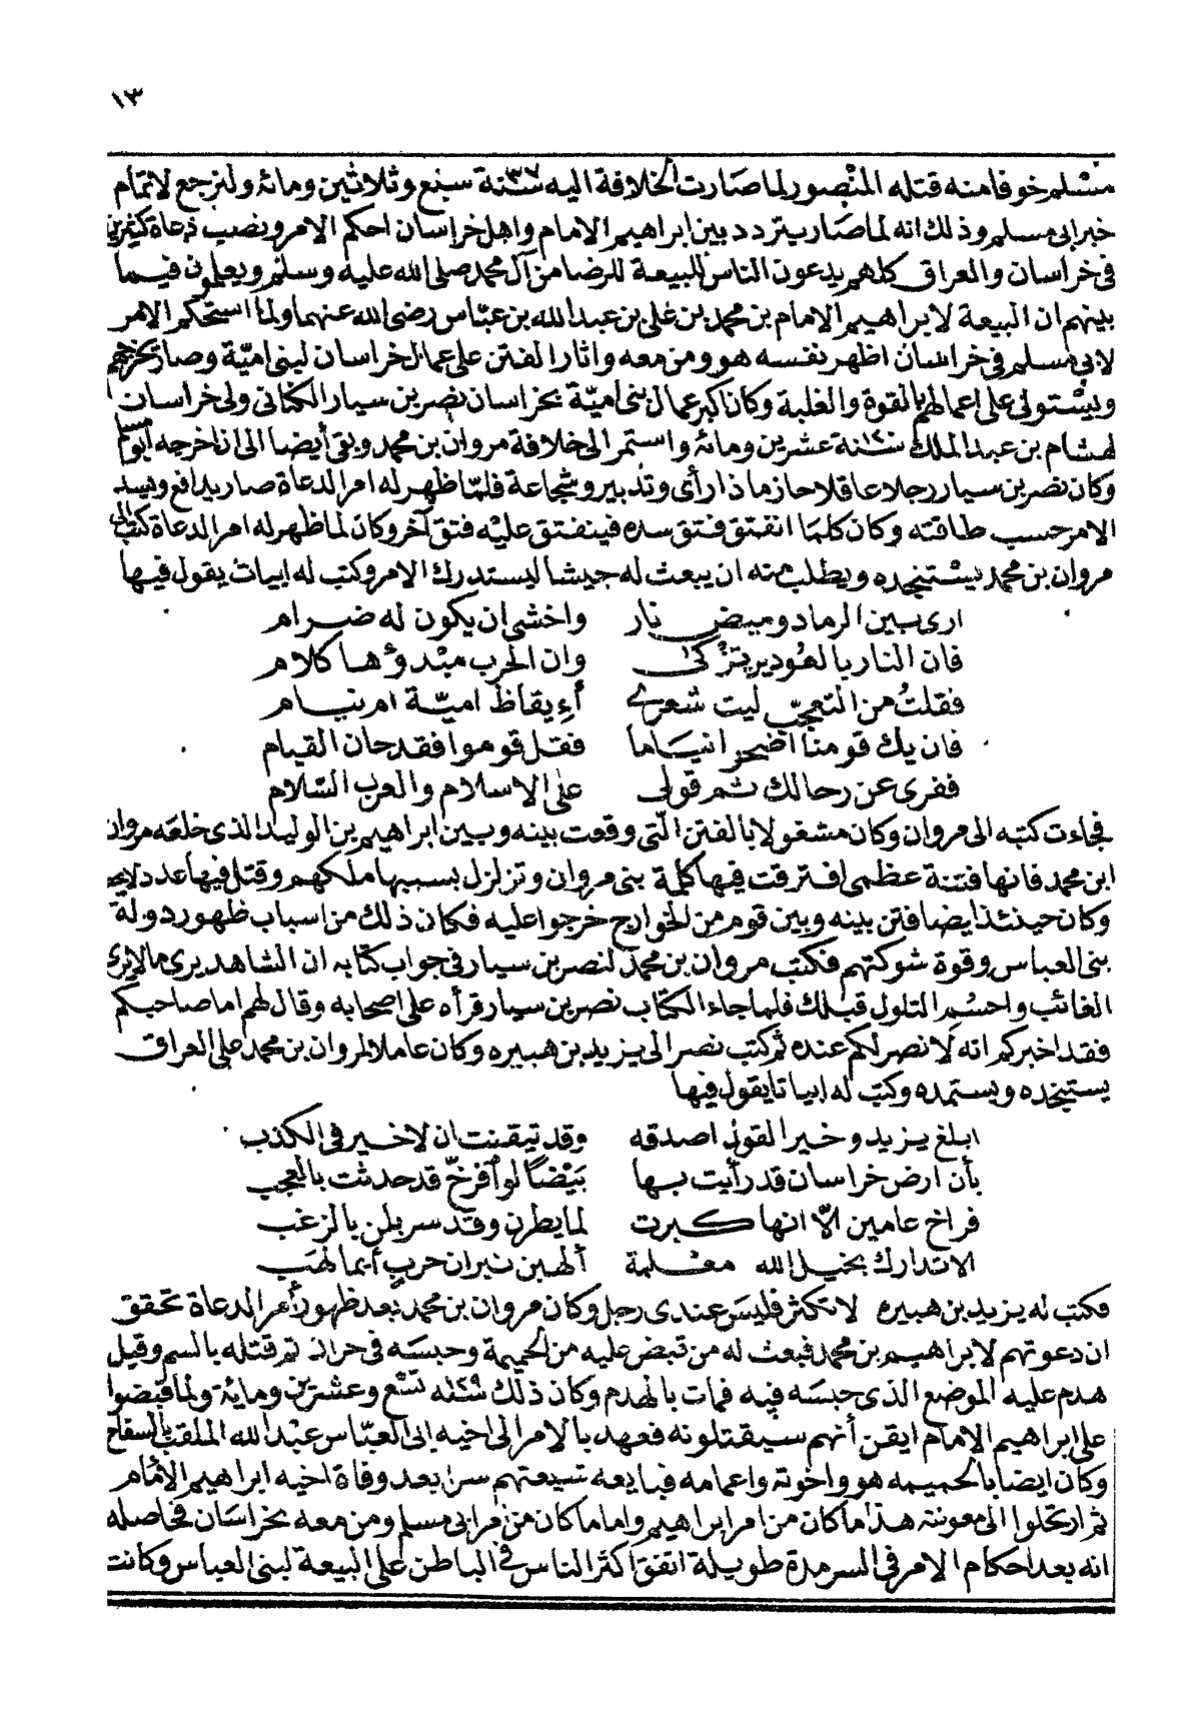 ١٣
مسلم خوفا منه قتله المنصور لما صارت الخلافة اليه سنة ١٣٧ سبع وثلاثين ومائة ولنرجع لاتمام
خبر ابى مسلم وذلك انه لما صار يتردد بين ابراهيم الامام واهل خراسان احكم الامر ونصب دعاة كثيرين
فى خراسان والعراق كلهم يدعون الناس للبيعة للرضا من آل محمد صلى الله عليه وسلم ويعلمون فيما
بينهم ان البيعة لابراهيم الامام بن محمد بن على بن عبد الله بن عباس رضى الله عنهما ولما استحكم الامر
لابى مسلم فى خراسان اظهر نفسه هو ومن معه واثار الفتن على عمال خراسان لبنى اميّة وصار يخرجهم
ويستولى على اعمالهم بالقوة والغلبة وكان اكبر عمال بنى اميّة بخراسان نصر بن سيار الكنانى ولى خراسان
لهشام بن عبد الملك سنة ١٢٠ عشرين ومائة واستمر الى خلافة مروان بن محمد وبقى أيضا الى ان اخرجه أبو مسلم
وكان نصر بن سيار رجلا عاقلا حازما ذا رأى وتدبير وشجاعة فلمّا ظهر له امر الدعاة صار يدافع ويسد
الامر حسب طاقته وكان كلما انفتق فتق سده فينفتق عليه فتق آخر وكان لما ظهر له امر الدعاة كتب الى
مروان بن محمد يستنجده ويطلب منه ان يبعث له جيشا ليستدرك الامر وكتب له ابيات يقول فيها
ارى بين الرماد وميض نار واخشى ان يكون له ضرام
فان النار بالعود ين تزكى وان الحرب مبدؤها كلام
فقلتُ من التعجّب ليت شعرى أإيقاظ اميّة ام نيام
فان يك قومنا اضحوا نياما فقل قوموا فقد حان القيام
ففرى عن رحالك ثم قولى على الاسلام والعرب السّلام
فجاءت كتبه الى مروان وكان مشغولا بالفتن الّتى وقعت بينه وبين ابراهيم بن الوليد الذى خلعه مروان
ابن محمد فانها فتنة عظمى افترقت فيها كلمة بنى مروان وتزلزل بسببها ملكهم وقتل فيها عدد لايحصى
وكان حينئذ ايضا فتن بينه وبين قوم من الخوارج خرجوا عليه فكان ذلك من اسباب ظهور دولة
بنى العباس وقوة شوكتهم فكتب مروان بن محمد لنصر بن سيار فى جواب كتابه ان الشاهد يرى مالايرى
الغائب واحسم التلول قبلك فلما جاء الكتاب نصر بن سيار قرأه على اصحابه وقال لهم اما صاحبكم
فقد اخبركم انه لا نصر لكم عنده ثم كتب نصر الى يزيد بن هبيره وكان عاملا لمروان بن محمد على العراق
يستنجده ويستمده وكتب له ابياتا يقول فيها
ابلغ يزيد وخير القول اصدقه وقد تيقنت ان لاخير فى الكذب
بأن ارض خراسان قد رأيت بها بَيْضًا لو أفرخّ قد حدثت بالعجب
فراخ عامين الّا انها كبرت لما يطرن وقد سربلن بالزغب
الا تدارك بخيل الله معلمة ألهبن نيران حرب أيما لهب
فكتب له يزيد بن هبيره لا تكثر فليس عندى رجل وكان مروان بن محمد بعد ظهور أمر الدعاة تحقق
ان دعوتهم لابراهيم بن محمد فبعث له من قبض عليه من الحميمة وحبسه فى حران ثم قتله بالسم وقيل
هدم عليه الموضع الذى حبسه فيه فمات بالهدم وكان ذلك سنة ١٢٩ تسع وعشرين ومائة ولما قبضوا
على ابراهيم الامام ايقن أنهم سيقتلونه فعهد بالامر الى اخيه ابى العبّاس عبد الله الملقب بالسفاح
وكان ايضا بالحميمه هو واخوته واعمامه فبايعه شيعتهم سرا بعد وفاة اخيه ابراهيم الأمام
ثم ارتحلوا الى معونته هذا ما كان من امر ابراهيم واما ما كان من امر ابى مسلم ومن معه بخراسان فحاصله
انه بعد احكام الامر فى السر مدة طويلة اتفق اكثر الناس فى الباطن على البيعة لبنى العباس وكانت